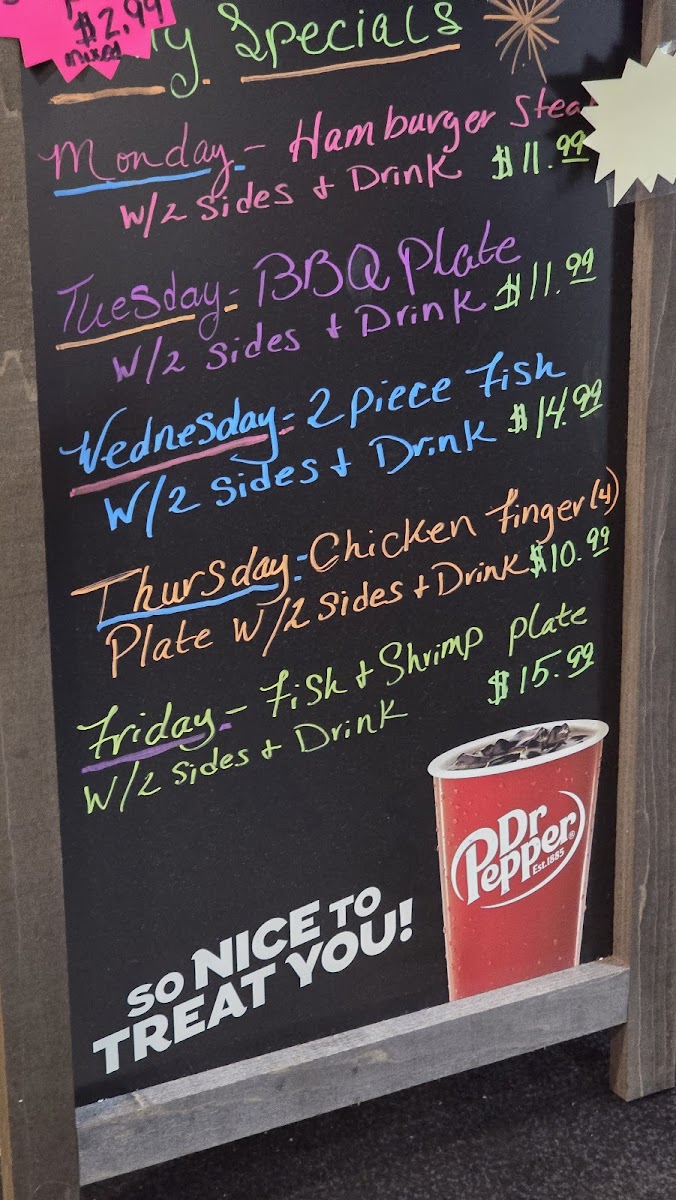 $2.99
mixed
y Specials
Monday - Hamburger Stea
W/2 Sides + Drink $11.99
Tuesday - BBQ Plate
W/2 sides + Drink $11.99
Wednesday - 2 Piece Fish
W/2 sides + Drink $14.99
Thursday - Chicken Finger (4)
Plate W/2 sides + Drink $10.99
Friday - Fish + Shrimp plate
W/2 sides + Drink $15.99
Dr
Pepper®
Est.1885
SO NICE TO
TREAT YOU!